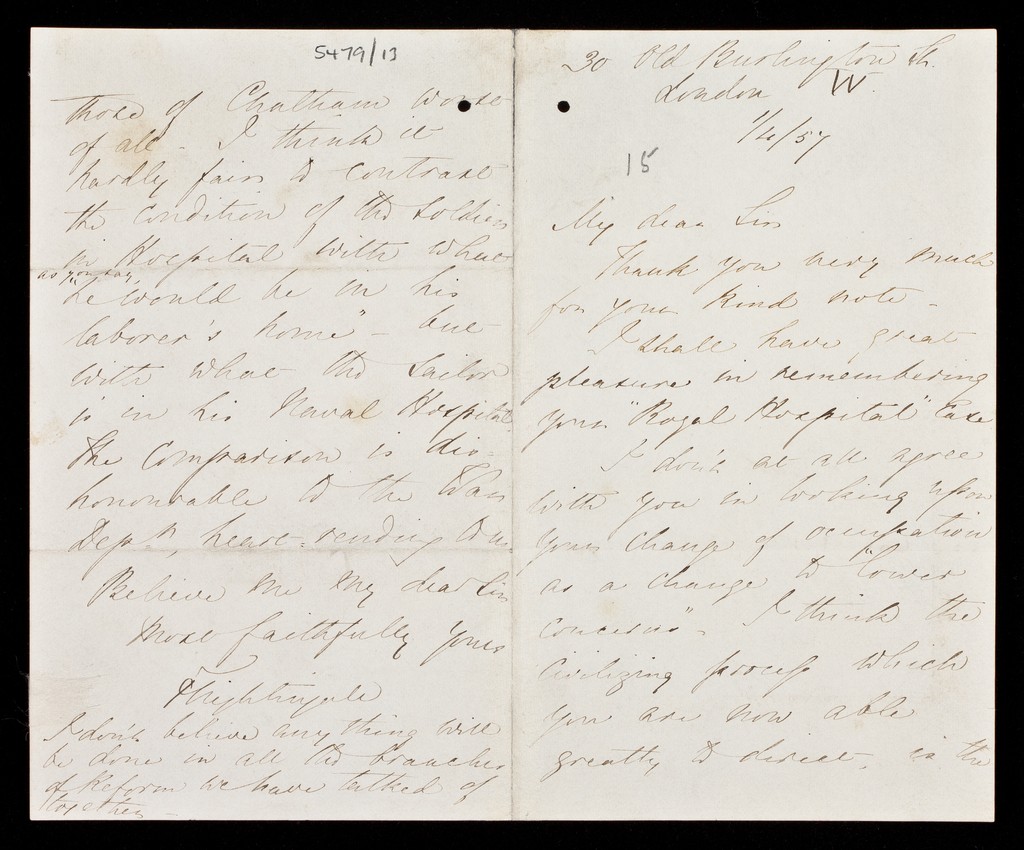 30 Old Burlington St.
London W.
1/4/57
15
My dear Sir
Thank you very much
for your kind note -
I shall have great
pleasure in remembering
your "Royal Hospital" Case
I don't at all agree
with you in looking upon
your change of occupation
as a change to "lower
concerns". I think the
civilizing process which
you are now able
greatly to direct, is the
5479/13
those of Chatham worse
of all - I think it
hardly fair to contrast
the condition of the Soldier
in Hospital with what
as you say,
"he would be in his
laborer's home" - but
with what the Sailor
is in his Naval Hospital
The Comparison is dis-
honourable to the War
Dept, heart-rending to me
Believe me my dear Sir
most faithfully yours
F Nightingale
I don't believe anything will
be done in all the branches
of Reform we have talked of
together -